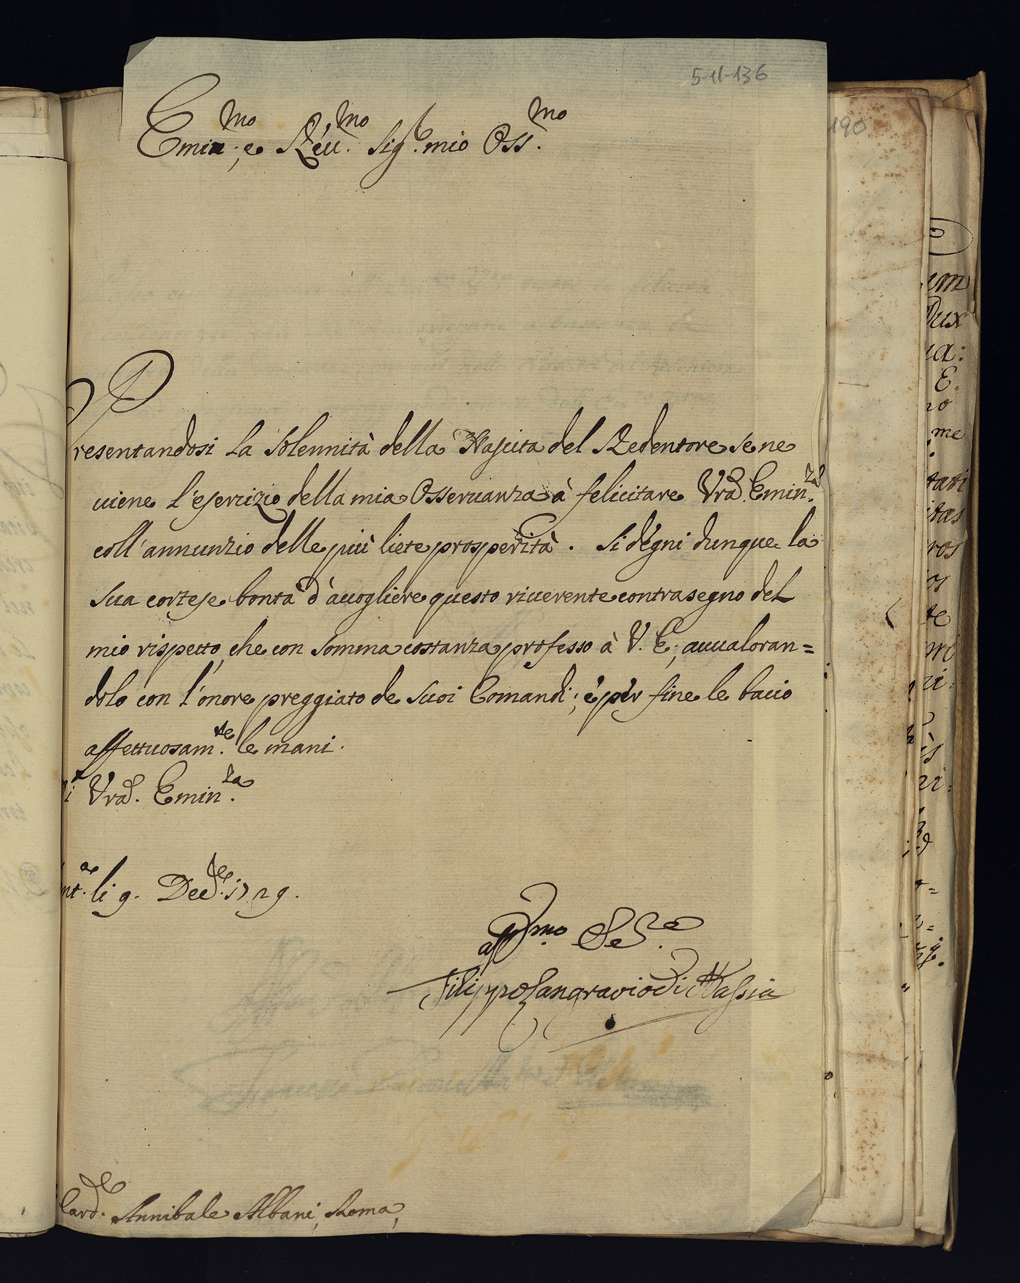 5-11-136
190
Emin.mo e Reu.mo Sig.r mio Oss.mo
Presentandosi la Solennità della Nascita del Redentore se ne
uiene l'eserzizio della mia Osseruanza à felicitare Vra Emin.za
coll'annunzio delle più liete prosperità. Si degni dunque la
sua cortese bontà d'accogliere questo riuerente contrasegno del
mio rispetto, che con somma costanza professo à V. E., auualoran=
dolo con l'onore preggiato de suoi Comandi; è per fine le bacio
affettuosam.te le mani.
Di Vra Emin.za
li 9. Dec.re 1729.
aff.mo Se.re
Filippo Langravio di Hassia
Card.le Annibale Albani, Roma,